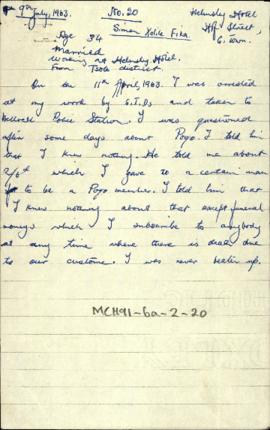 9th July, 1963. No. 20 Helmsley Hotel
Hof Street,
C. Town.
Simon Xolile Fika.
Age 34
Married
Working at Helmsley Hotel.
From Tsolo district
On the 11th April, 1963. I was arrested
at my work by C.I.Ds and taken to
Police Station. I was questioned
after some days about Poqo. I told him
that I knew nothing. He told me about
2/6d which I gave to a certain man
to be a Poqo member. I told him that
I knew nothing about that except funeral
moneys which I subscribe to anybody
at any time where there is deal due
to our custome. I was never beaten up.
MCH91-6a-2-20